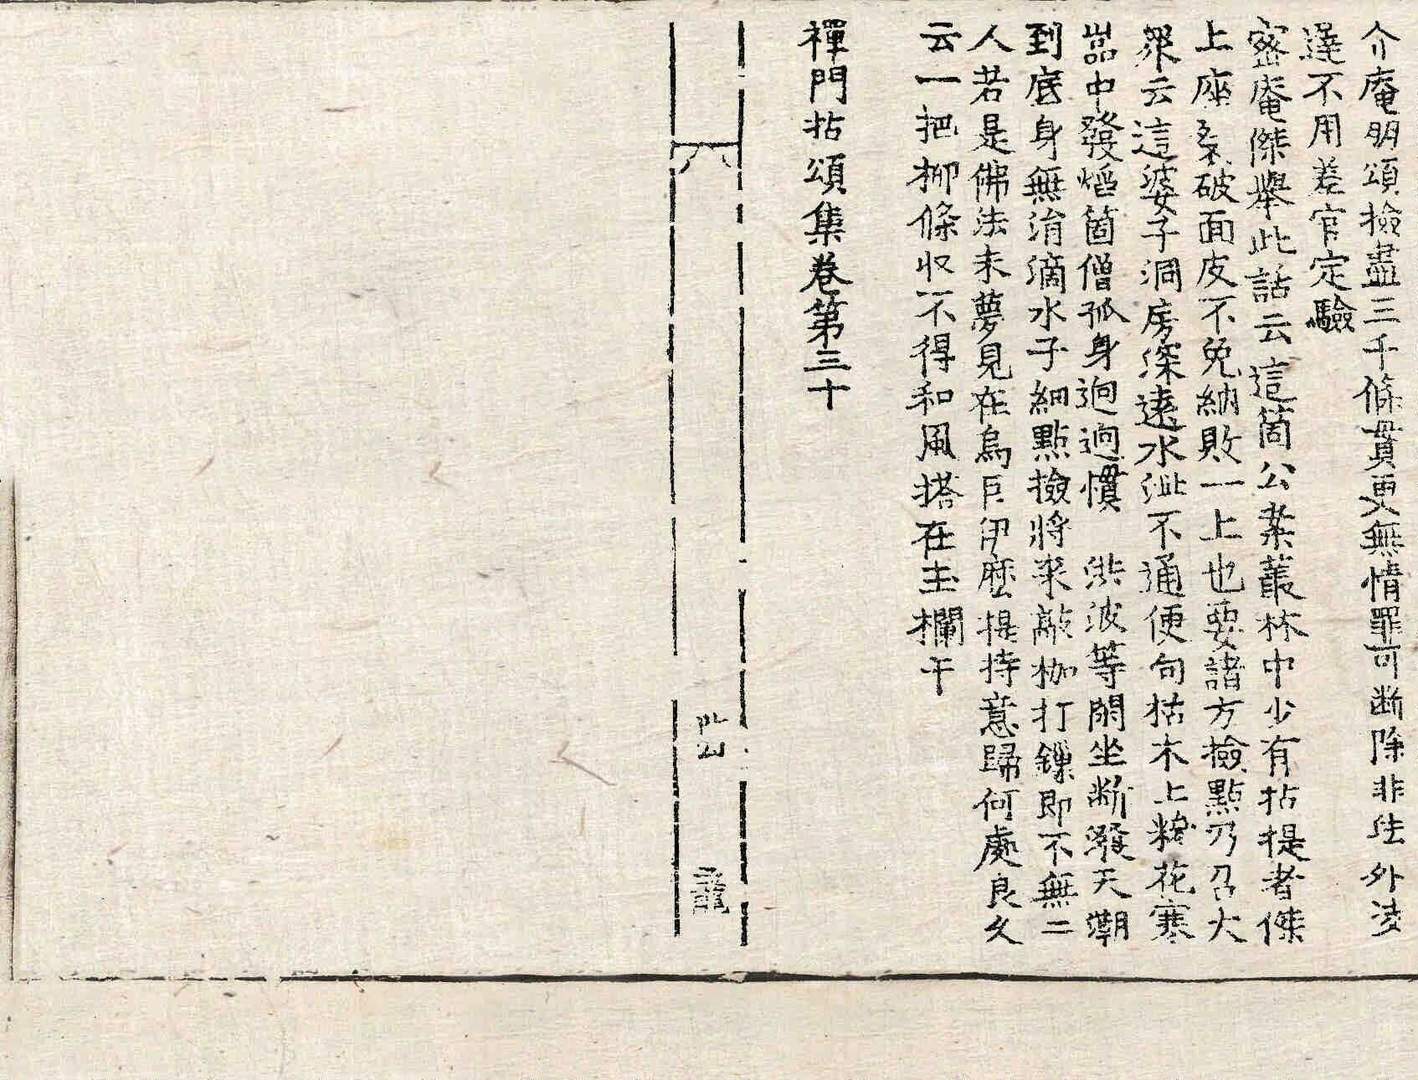 介庵朋頌撿盡三千條貫更無情罪可断除非法外凌
遲不用差官定驗
密庵傑舉此話云這箇公案叢林中少有拈提者傑
上座裂破面皮不免納敗一上也要諸方撿點乃召大
眾云這婆子洞房深遠水泄不通便向枯木上糝花寒
嵓中發焰箇僧孤身逈逈慣 洪波等閑坐断潑天潮
到底身無涓滴水子細點撿將来敲枷打鏁即不無二
人若是佛法未夢見在烏巨伊麽提持意歸何處良久
云一把柳條収不得和風搭在玉欄干
禪門拈頌集卷第三十